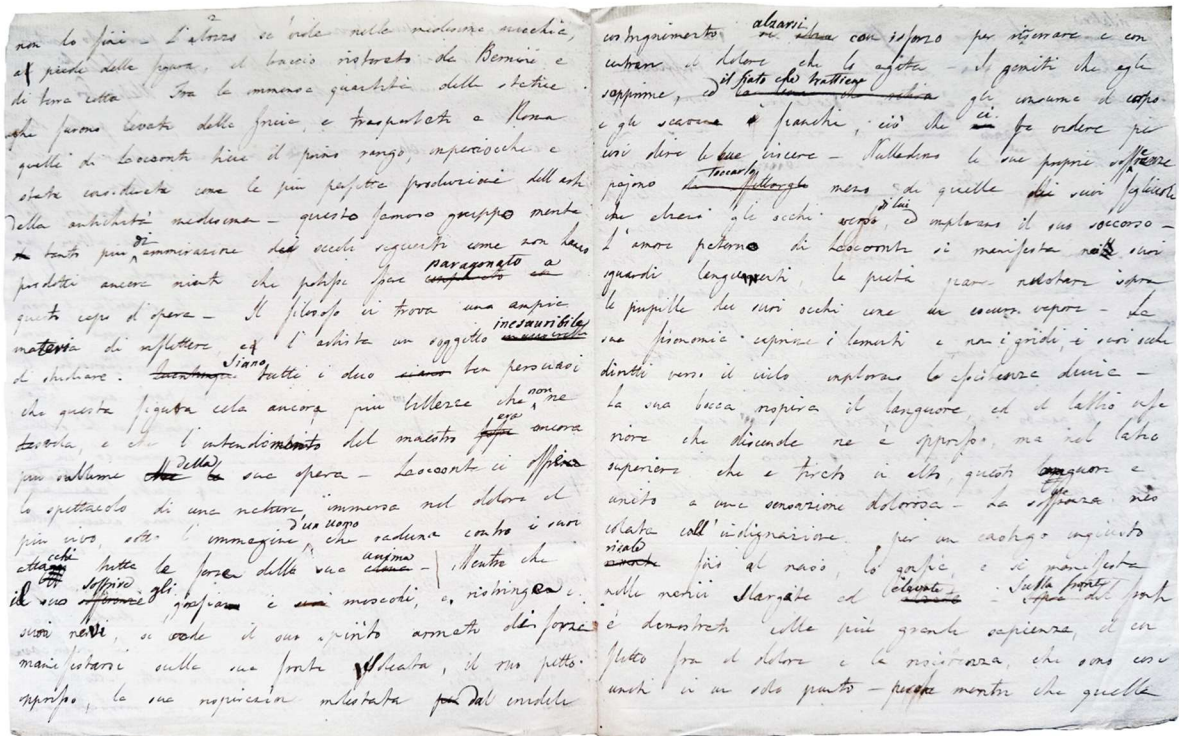 non lo finì - L'abozzo si vede nelle medesime nicchie,
al piede della figura, il braccio ristorato da Bernini è
di terra cotta - Fra la immensa quantità delle statue
che furono levate dalla Grecia, e trasportate a Roma
quella di Laocoonte tiene il primo rango, imperciocche è
stata considerata come la più perfetta produzione dell'arte
della antichità medesima - questo famoso gruppo merita
tanto più di ammirazione dai secoli seguenti come non hanno
prodotti ancora niente che potesse essere paragonato a
questo capo d'opera - Il filosofo vi trova una ampia
materia di riflettere, e l'artista un soggetto inesauribile
di studiare. Siano tutti i due ben persuasi
che questa figura cela ancora più bellezze che non ne
svela, e che l'intendimento del maestro era ancora
più sublime della sua opera - Laocoonte ci offre
lo spettacolo di una natura immersa nel dolore il
più vivo, sotto l'immagine d'un uomo, che raduna contro i suoi
attacchi tutte le forze della sua anima - Mentre che
il suo soffrire gli gonfia i muscoli, e ristringe i
suoi nervi, si vede il suo spirito armato di forza
manifestarsi sulla sua fronte solcata, il suo petto
oppresso, la sua respirazione molestata dal crudele
costrignimento alzarsi con isforzo per riserrare e con
centrare il dolore che lo agita - I gemiti che egli
sopprime, ed il fiato che trattiene gli consuma il corpo
e gli scavano i fianchi, ciò che ci fa vedere per
così dire le sue viscere - Nulladimeno le sue proprie sofferenze
pajono toccarlo meno di quelle dei suoi figliuoli
che alzano gli occhi verso di lui, ed implorano il suo soccorso -
L'amore paterno di Laocoonte si manifesta nei suoi
sguardi languenti, la pietà pare nuotare sopra
le pupille dei suoi occhi come un oscuro vapore - La
sua fisonomia esprime i lamenti e non i gridi, i suoi occhi
diretti verso il cielo implorano la assistenza divina -
La sua bocca respira il languore, ed il labbro infe
riore che discende ne è oppresso, ma nel labbro
superiore che è tirato in alto, questo languore è
unito a una sensazione dolorosa - La sofferenza mes
colata coll'indignazione, per un castigo ingiusto
risale fino al naso, lo gonfia, e si manifesta
nelle narici slargate ed elevate - Sulla fronte
è dimostrato colla più grande sapienza, il con
flitto fra il dolore e la resistenza, che sono così
uniti in un solo punto - mentre che quella